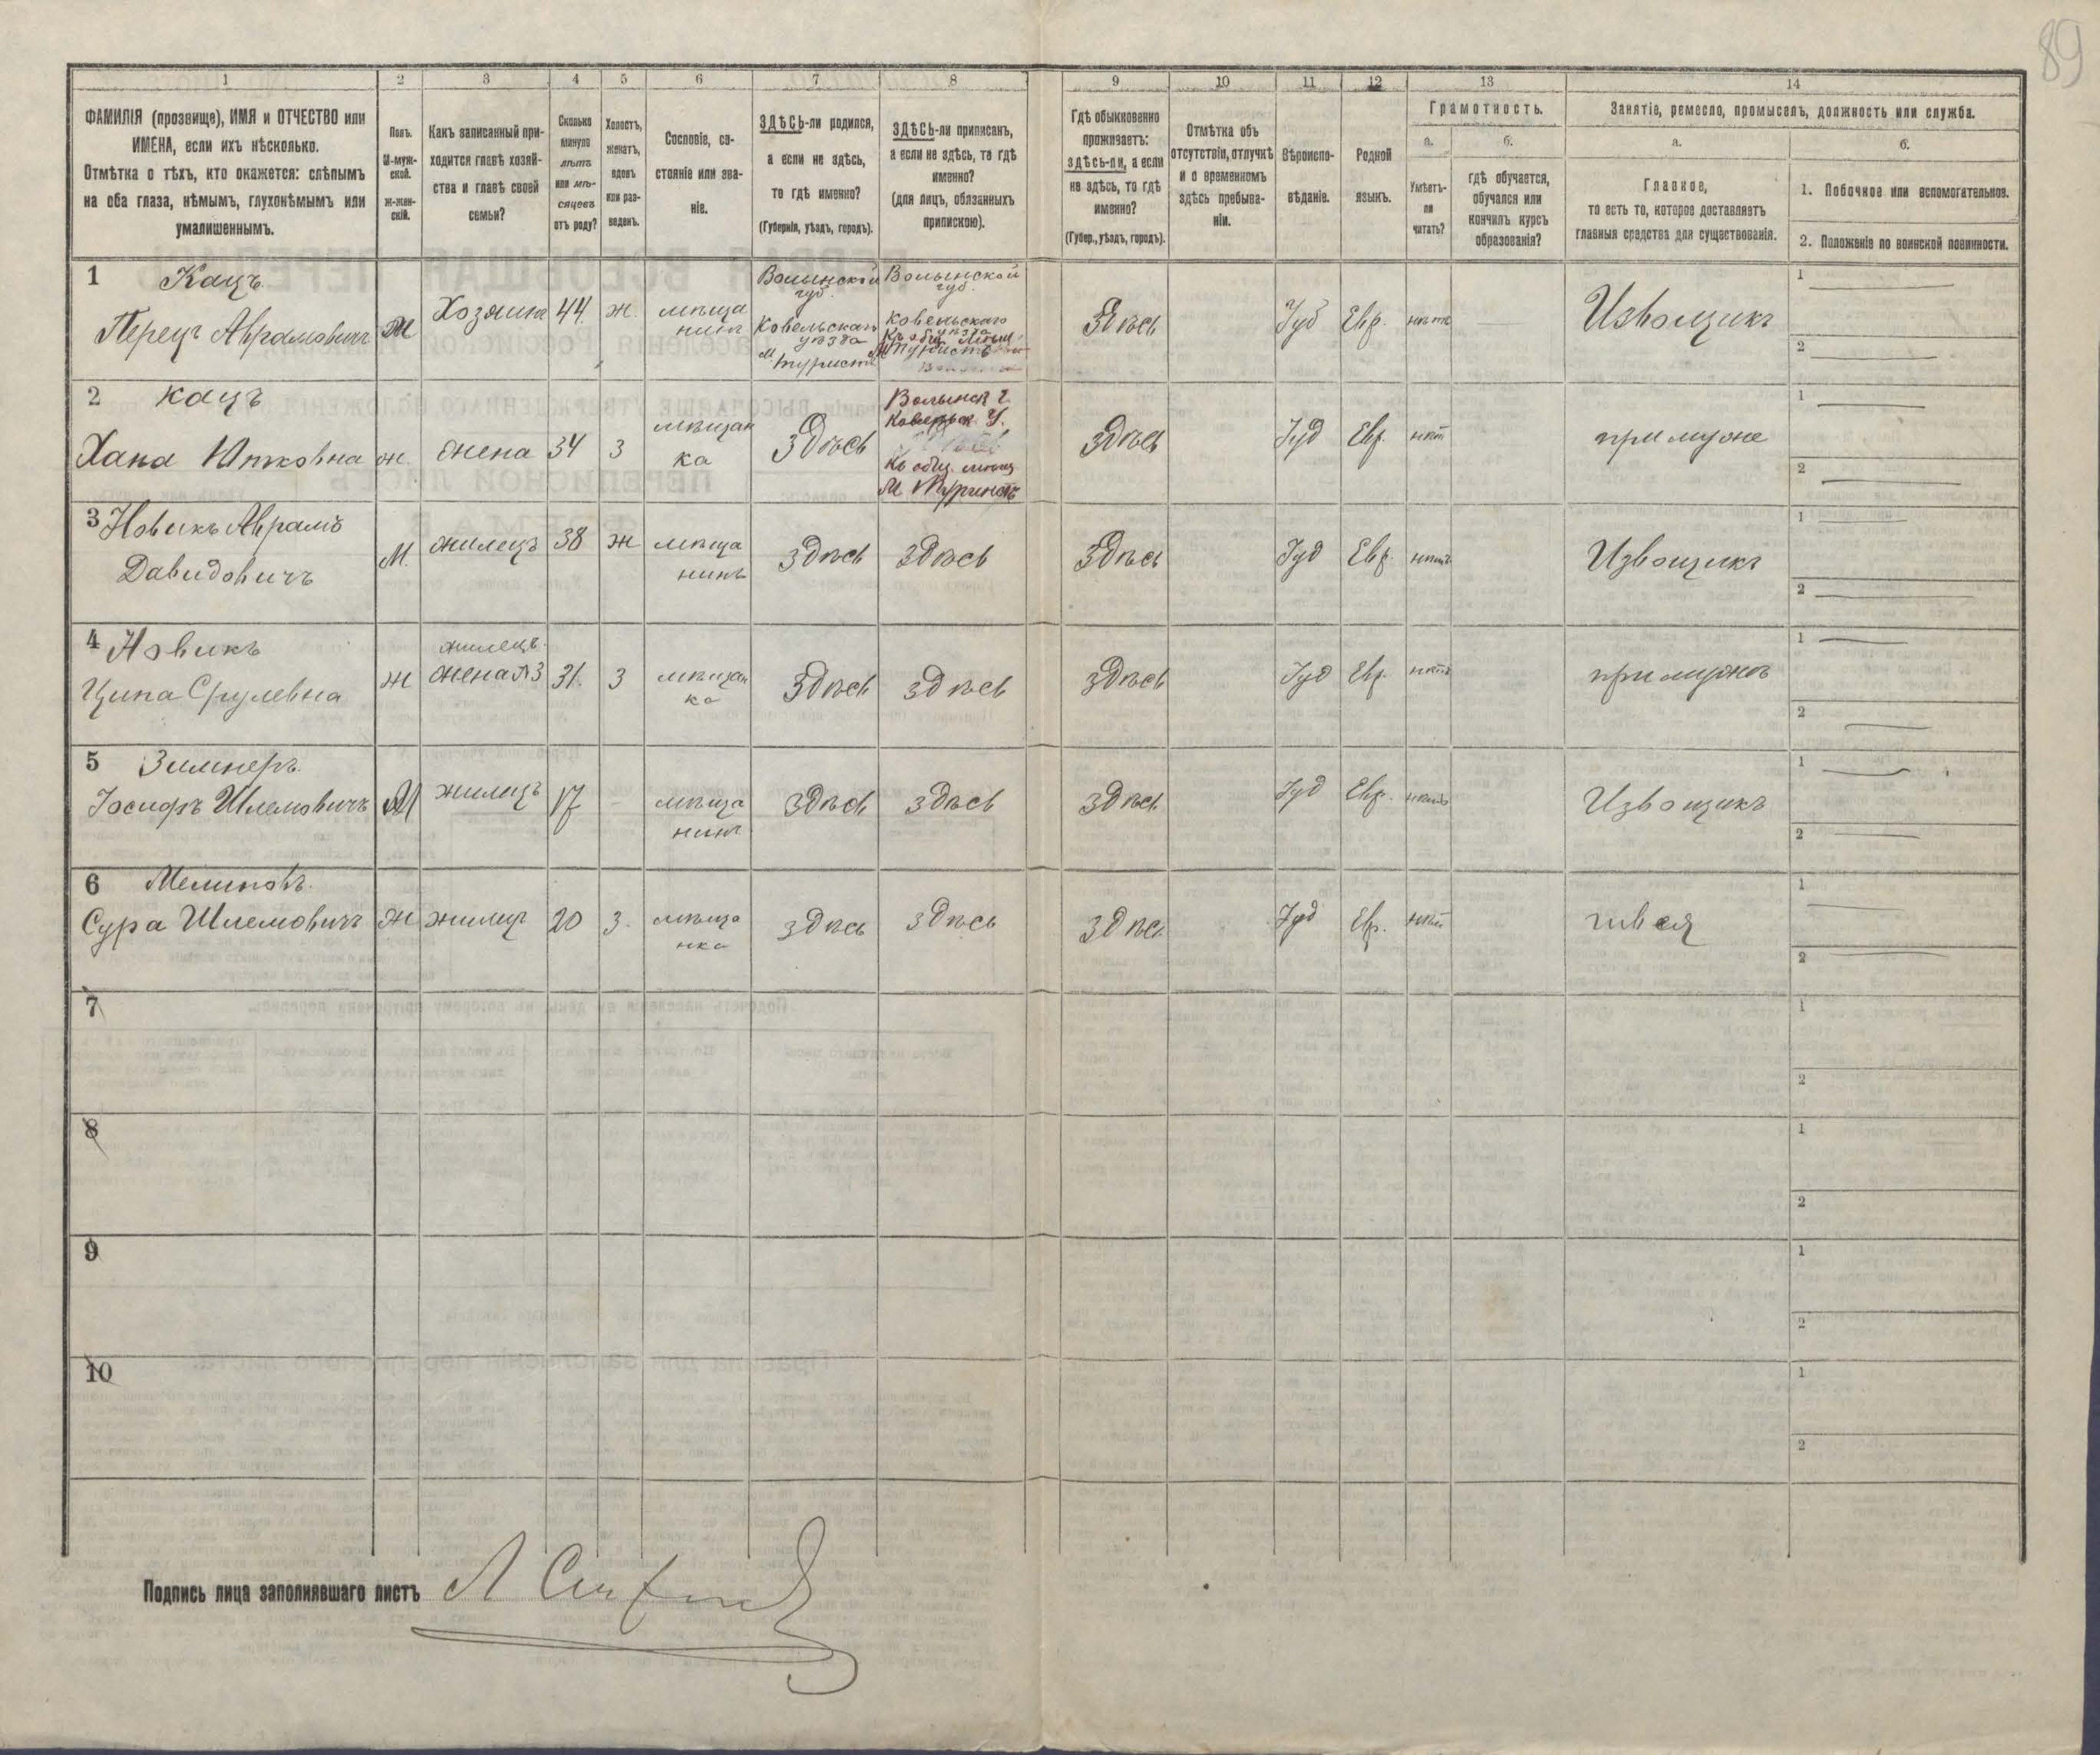 89
1 2 3 4 5 6 7 8 9 10 11 12 13 14
ФАМИЛІЯ (прозвище), ИМЯ и ОТЧЕСТВО или
ИМЕНА, если ихъ нѣсколько.
Отмѣтка о тѣхъ, кто окажется: слѣпымъ
на оба глаза, нѣмымъ, глухонѣмымъ или
умалишеннымъ.
Полъ.
М-муж-
ской.
Ж-жен-
скій.
Какъ записанный при-
ходится главѣ хозяй-
ства и главѣ своей
семьи?
Сколько
минуло
лѣтъ
или мѣ-
сяцевъ
отъ роду?
Холостъ,
женатъ,
вдовъ
или раз-
веденъ.
Сословіе, со-
стояніе или зва-
ніе.
ЗДѢСЬ-ли родился,
а если не здѣсь,
то гдѣ именно?
(Губернія, уѣздъ, городъ).
ЗДѢСЬ-ли приписанъ,
а если не здѣсь, то гдѣ
именно?
(для лицъ, обязанныхъ
припискою).
Гдѣ обыкновенно
проживаетъ:
здѣсь-ли, а если
не здѣсь, то гдѣ
именно?
(Губер., уѣздъ, городъ).
Отмѣтка объ
отсутствіи, отлучкѣ
и о временномъ
здѣсь пребыва-
ніи.
Вѣроиспо-
вѣданіе.
Родной
языкъ.
Грамотность.
а.
Умѣетъ-
ли
читать?
б.
гдѣ обучается,
обучался или
кончилъ курсъ
образованія?
Занятіе, ремесло, промыселъ, должность или служба.
а.
Главное,
то есть то, которое доставляетъ
главныя средства для существованія.
б.
1. Побочное или вспомогательное.
2. Положеніе по воинской повинности.
1 Кацъ
Перецъ Аврамовичъ
Хозяинъ
44
ж.
мѣща
нинъ
Волынской
губ.
Ковельскаго
уѣзда
м.
Волынской
губ.
Ковельскаго
уѣзда
Здѣсь
Іуд
Евр.
нѣтъ
Извощикъ
1
2
2 Кацъ
Хана Ицковна
ж.
жена
34
З
мѣщан
ка
Здѣсь
Волынск г.
Ковельск. у.
Къ общ. мѣщ
Здѣсь
Іуд
Евр.
нѣт
при муже
1
2
3 Новикъ Аврамъ
Давидовичъ
М.
жилецъ
38
ж
мѣща
нинъ
Здѣсь
Здѣсь
Здѣсь
Іуд
Евр.
нѣтъ
Извощикъ
1
2
4 Новикъ
Ципа Срулевна
ж
жилецъ.
жена №3
31.
З
мѣщан
ка
Здѣсь
Здѣсь
Здѣсь
Іуд
Евр.
нѣтъ
при мужѣ
1
2
5 Зимнеръ
Іосифъ Шлемовичъ
М
жилецъ
17
-
мѣща
нинъ
Здѣсь
Здѣсь
Здѣсь
Іуд
Евр.
нѣтъ
Извощикъ
1
2
6
Сура Шлемовичъ
Ж
жилец
20
З.
мѣща
нка
Здѣсь
Здѣсь
Здѣс.
Іуд
Евр.
нѣт
швея
1
2
7
1
2
8
1
2
9
1
2
10
1
2
Подпись лица заполнявшаго листъ